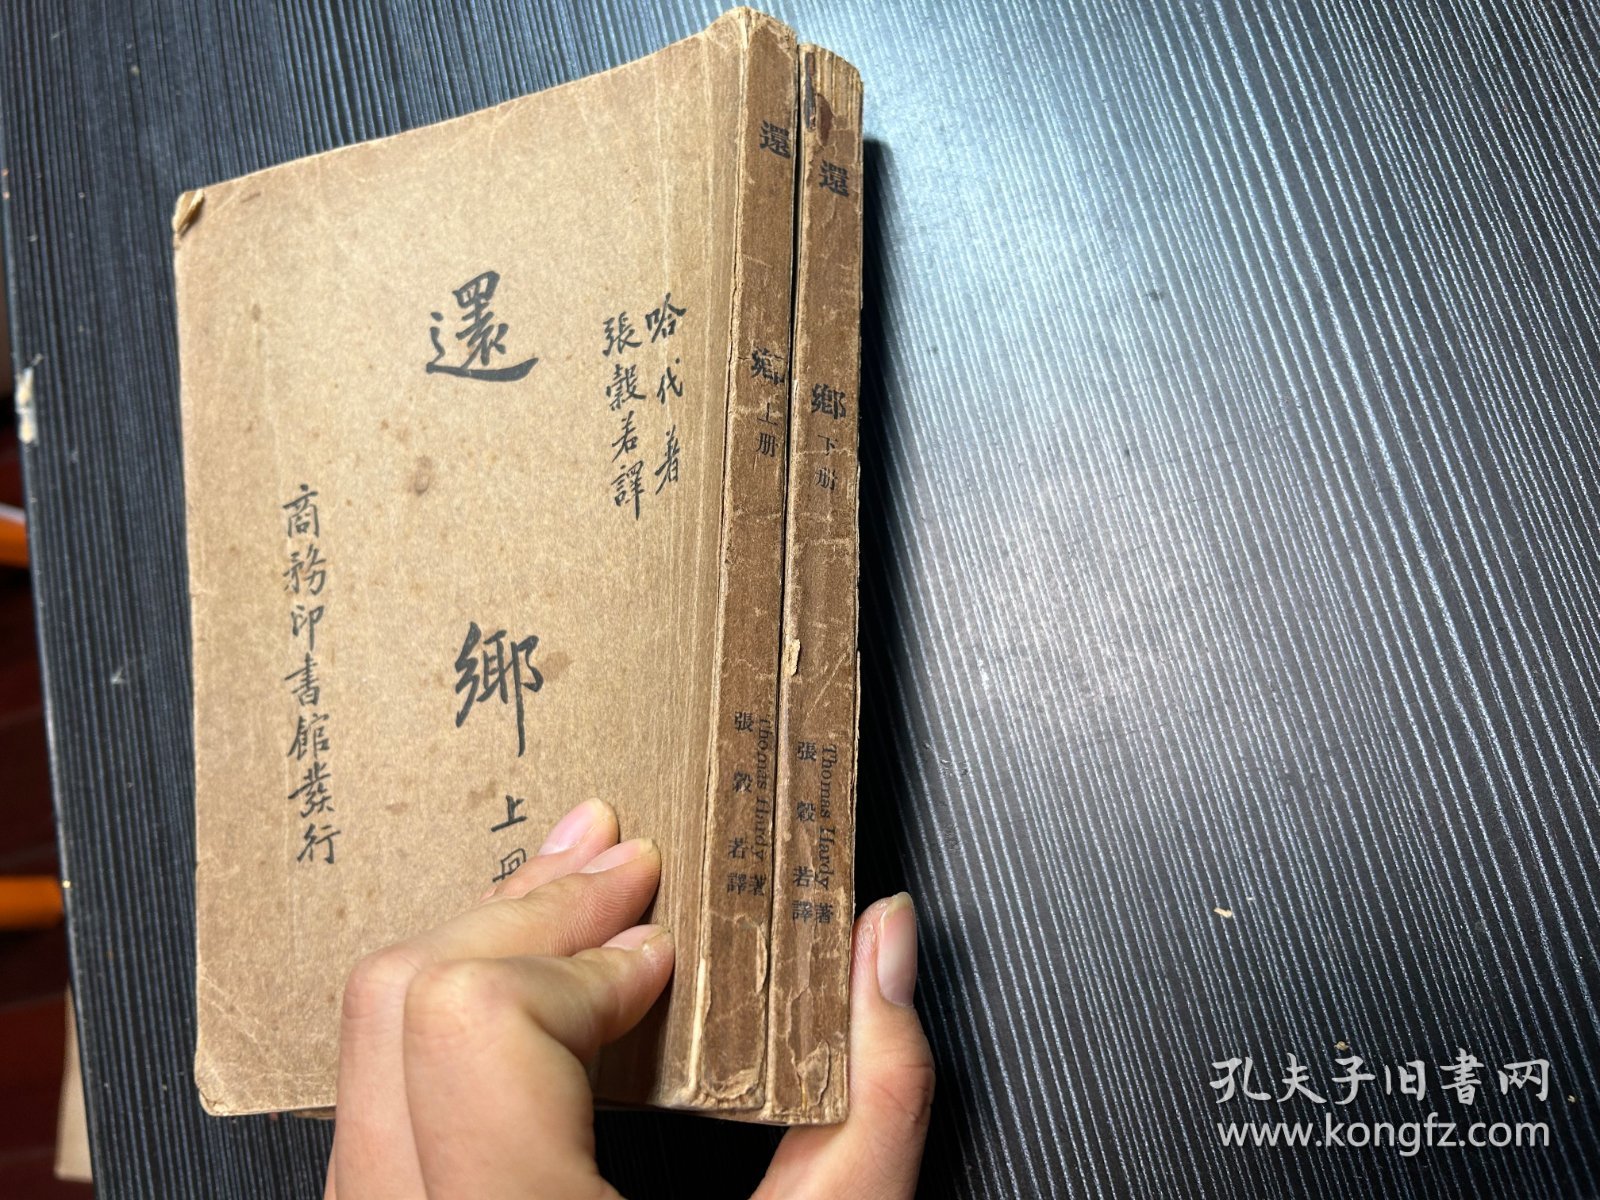 哈代著
張穀若譯
還鄉上冊
商務印書館發行
還鄉上册
Thomas Hardy著
張穀若譯
還鄉下册
Thomas Hardy著
張穀若譯
孔夫子旧书网
www.kongfz.com